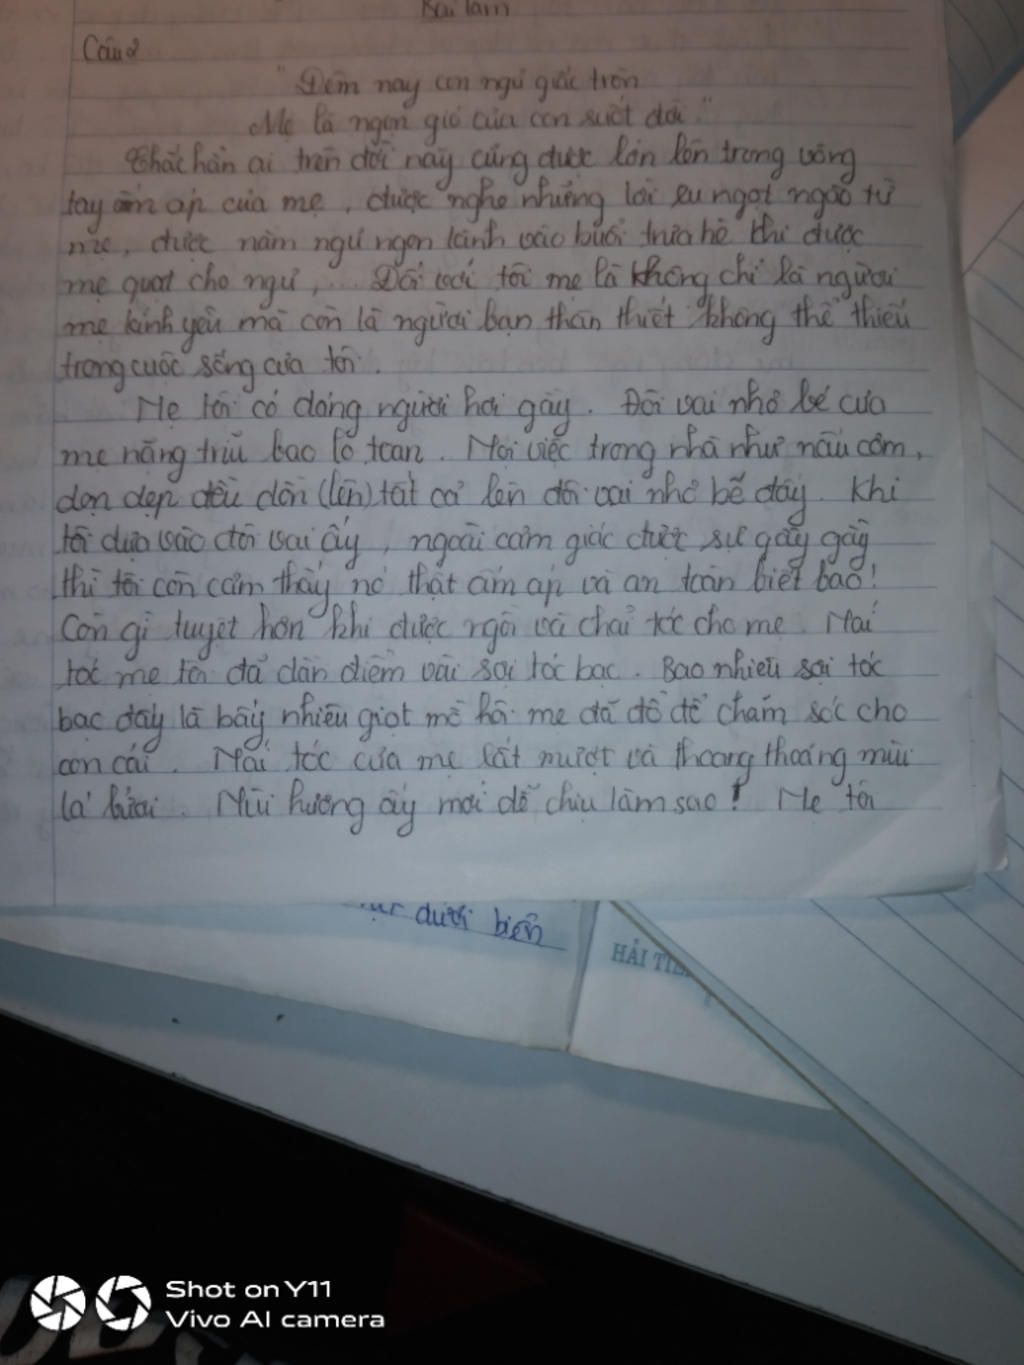 Bài làm
Câu 2
"Đêm nay con ngủ giấc tròn
Mẹ là ngọn gió của con suốt đời."
Chắc hẳn ai trên đời này cũng được lớn lên trong vòng
tay ấm áp của mẹ, được nghe những lời ru ngọt ngào từ
mẹ, được nằm ngủ ngon lành vào buổi trưa hè khi được
mẹ quạt cho ngủ,... Đối với tôi mẹ là không chỉ là người
mẹ kính yêu mà còn là người bạn thân thiết không thể thiếu
trong cuộc sống của tôi.
Mẹ tôi có dáng người hơi gầy. Đôi vai nhỏ bé của
mẹ nặng trĩu bao lo toan. Mọi việc trong nhà như nấu cơm,
dọn dẹp đều dồn (lên) tất cả lên đôi vai nhỏ bé đấy. Khi
tôi dựa vào đôi vai ấy, ngoài cảm giác được sự gầy gầy
thì tôi còn cảm thấy nó thật ấm áp và an toàn biết bao!
Còn gì tuyệt hơn khi được ngồi và chải tóc cho mẹ. Mái
tóc mẹ tôi đã dần điểm vài sợi tóc bạc. Bao nhiêu sợi tóc
bạc đấy là bấy nhiêu giọt mồ hôi mẹ đã đổ để chăm sóc cho
con cái. Mái tóc của mẹ rất mượt và thoang thoảng mùi
lá bưởi. Mùi hương ấy mới dễ chịu làm sao! Mẹ tôi
dưới biển
HẢI TIẾ
Shot on Y11
Vivo AI camera